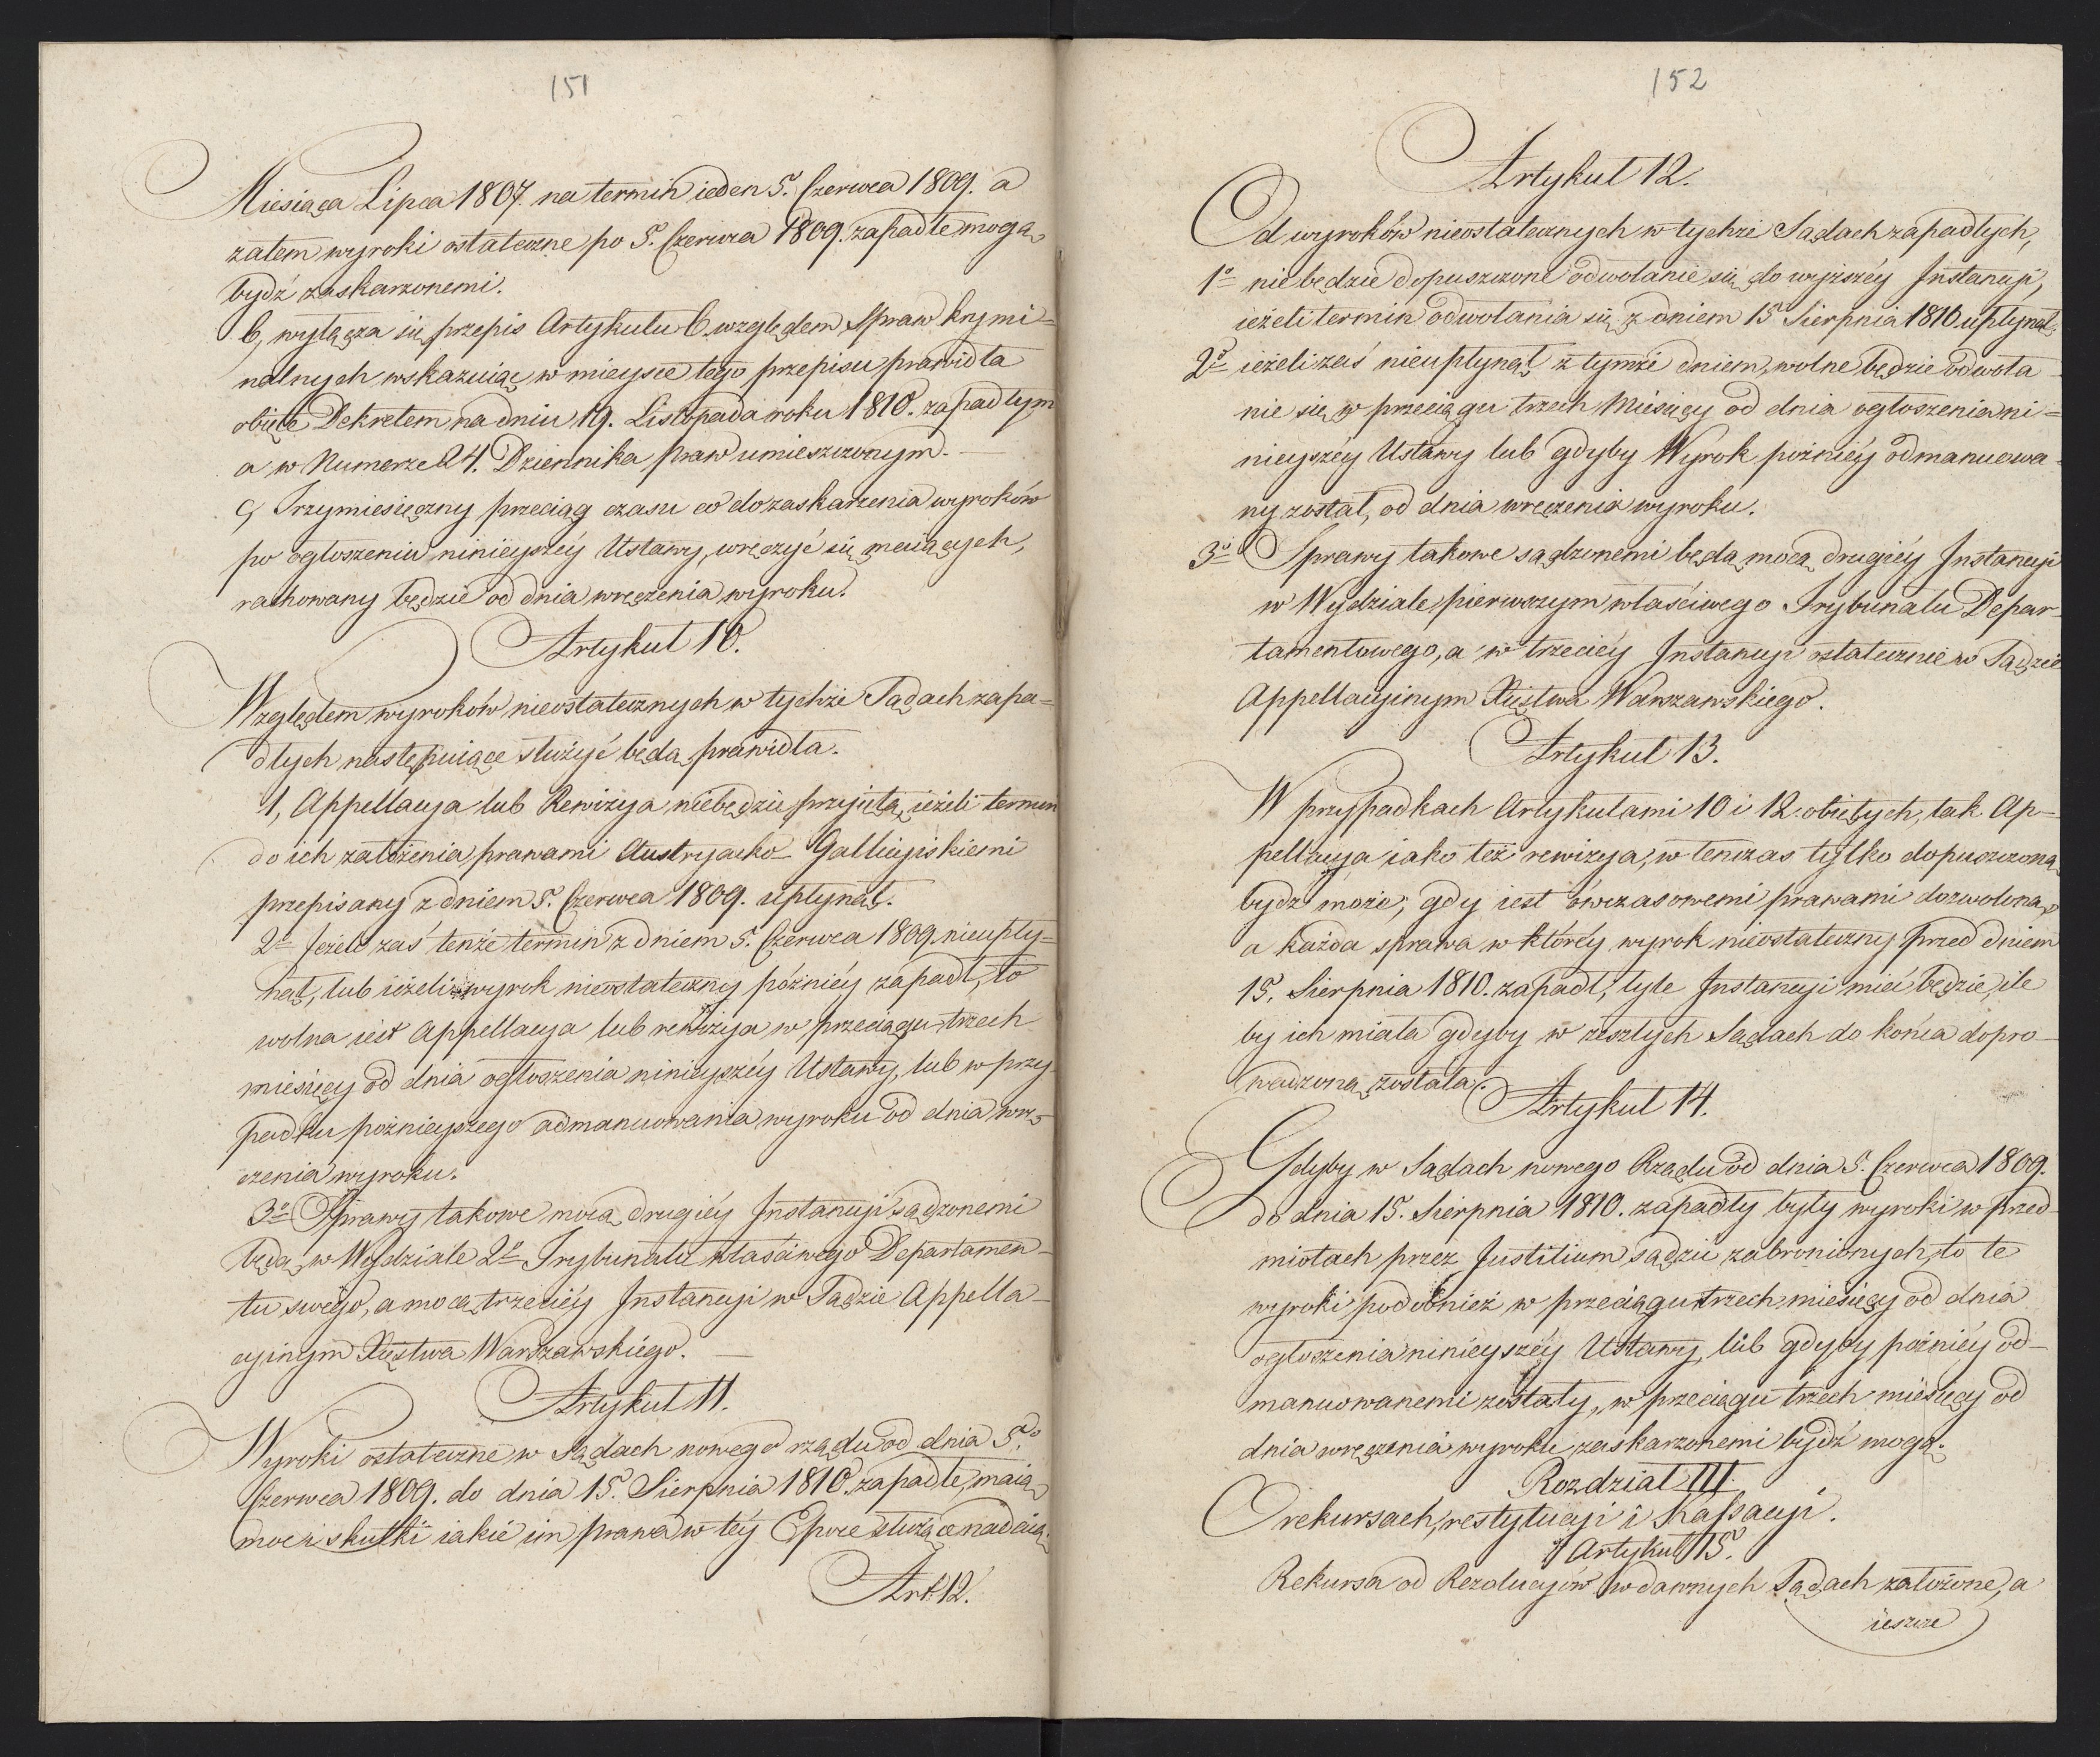 151
Miesiąca Lipca 1807. na termin ieden 5. Czerwca 1809. a
zatem wyroki ostateczne po 5. Czerwca 1809. zapadłe mogą
bydź zaskarżonemi.
b, wyłącza się przepis Artykułu 6. względem Spraw krymi=
nalnych wskazuiąc w mieysce tego przepisu prawidła
obięte Dekretem na dniu 19. Listopada roku 1810. zapadłym
a w Numerze 24. Dziennika praw umieszczonym. —
c, Trzymiesięczny przeciąg czasu co do zaskarżenia wyroków
po ogłoszeniu ninieyszéy Ustawy, wręczyć się maiących,
rachowany będzie od dnia wręczenia wyroku.
Artykuł 10.
Względem wyroków nieostatecznych w tychże Sądach zapa=
dłych następuiące służyć będą prawidła.
1, Appellacya lub Rewizya niebędzie przyiętą, ieżeli termin
do ich założenia prawami Austryacko-Gallicyiskiemi
przepisany z dniem 5. Czerwca 1809. upłynął.
2º Jeżeli zaś tenże termin z dniem 5. Czerwca 1809. nieupły=
nął, lub ieżeli wyrok nieostateczny póżniéy zapadł, to
wolna iest Appellacya lub rewizya w przeciągu trzech
miesięcy od dnia ogłoszenia ninieyszéy Ustawy, lub w przy
padku poźnieyszego admanuowania wyroku od dnia wrę=
czenia wyroku.
3º Sprawy takowe mocą drugiéy Instancyi sądzonemi
będą w Wydziale 2º Trybunału właściwego Departamen-
tu swego, a mocą trzeciéy Instancyi w Sądzie Appella-
cyinym Xięstwa Warszawskiego. —
Artykuł 11.
Wyroki ostateczne w Sądach nowego rządu od dnia 5º
Czerwca 1809. do dnia 15. Sierpnia 1810. zapadłe, maią
moc i skutki iakie im prawa w téy Epoce służące nadaią.
Art: 12.
152
Artykuł 12.
Od wyroków nieostatecznych w tychże Sądach zapadłych,
1º niebędzie dopuszczone odwołanie się do wyższéy Instancyi,
ieżeli termin odwołania się z dniem 15 Sierpnia 1810. upłynął.
2º ieżeli zaś nieupłynął z tymże dniem, wolne będzie odwoła-
nie się w przeciągu trzech Miesięcy od dnia ogłoszenia ni=
nieyszéy Ustawy lub gdyby Wyrok poźniéy odmanuowa-
ny został, od dnia wręczenia wyroku.
3º Sprawy takowe sądzonemi będą mocą drugiéy Instancyi
w Wydziale pierwszym właściwego Trybunału Depar-
tamentowego, a w trzeciéy Instancyi ostatecznie w Sądzie
Appellacyinym Xięstwa Warszawskiego.
Artykuł 13.
W przypadkach Artykułami 10 i 12. obiętych, tak Ap=
pellacya iako też rewizya, w tenczas tylko dopuszczoną
bydź może, gdy iest ówczasowemi prawami dozwoloną,
a każda sprawa w któréy wyrok nieostateczny przed dniem
15. Sierpnia 1810. zapadł, tyle Instancyi mieć będzie, ile
by ich miała gdyby w zeszłych Sądach do końca dopro-
wadzoną została.
Artykuł 14.
Gdyby w Sądach nowego Rządu od dnia 5. Czerwca 1809.
do dnia 15. Sierpnia 1810. zapadły były wyroki w przed-
miotach przez Justitium sądzić zabronionych, to te
wyroki podobnież w przeciągu trzech miesięcy od dnia
ogłoszenia ninieyszéy Ustawy, lub gdyby poźniéy od-
manuowanemi zostały, w przeciągu trzech miesięcy od
dnia wręczenia wyroku zaskarżonemi bydź mogą.
Rozdział III.
O rekursach, restytucyi i Kassacyi.
Artykuł 15.
Rekursa od Rezolucyów w dawnych Sądach założone, a
ieszcze